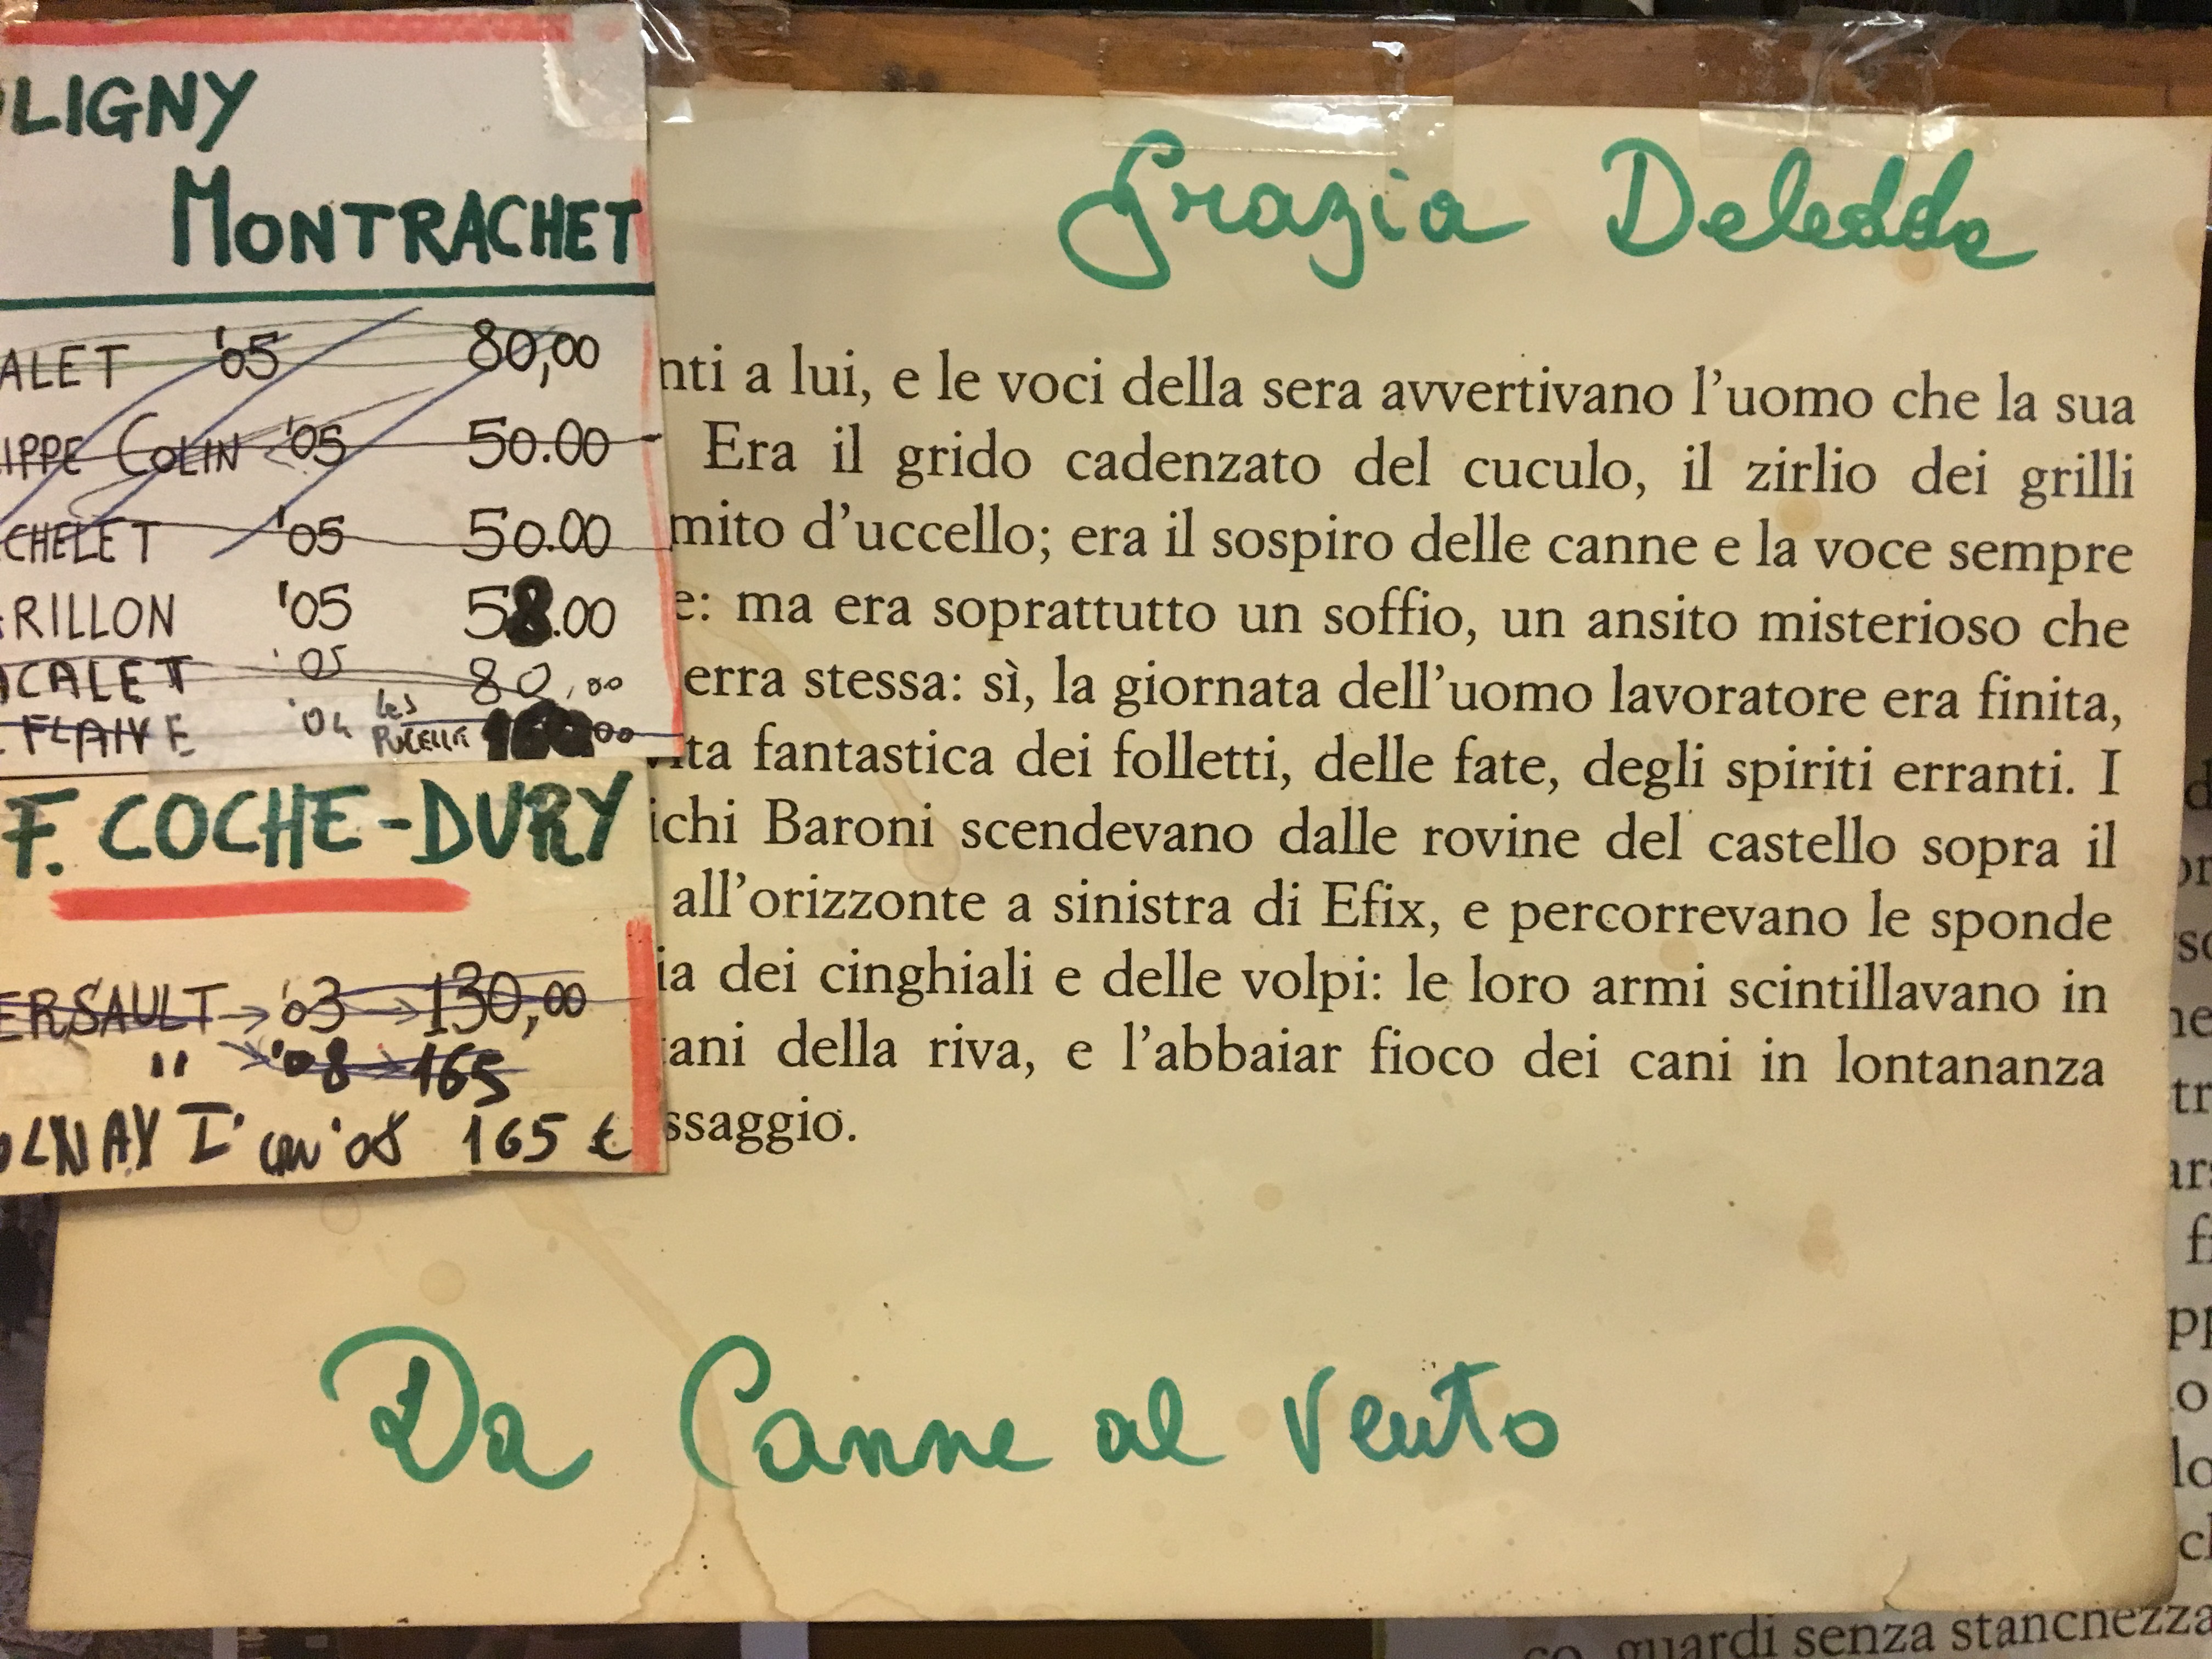 LIGNY
MONTRACHET
ALET '05 80,00
IPPE COLIN '05 50.00
CHELET '05 50.00
RILLON '05 58.00
CALET '05 80,00
FLAIVE '04 Les PUCELLE 00
F. COCHE-DURY
ERSAULT → '03 → 130,00
" → '08 → 165
LNAY I' '08 165 €
Grazia Deledda
nti a lui, e le voci della sera avvertivano l'uomo che la sua
Era il grido cadenzato del cuculo, il zirlio dei grilli
mito d'uccello; era il sospiro delle canne e la voce sempre
e: ma era soprattutto un soffio, un ansito misterioso che
erra stessa: sì, la giornata dell'uomo lavoratore era finita,
ita fantastica dei folletti, delle fate, degli spiriti erranti. I
ichi Baroni scendevano dalle rovine del castello sopra il
all'orizzonte a sinistra di Efix, e percorrevano le sponde
ia dei cinghiali e delle volpi: le loro armi scintillavano in
tani della riva, e l'abbaiar fioco dei cani in lontananza
ssaggio.
Da Canne al vento
co, guardi senza stanchezza